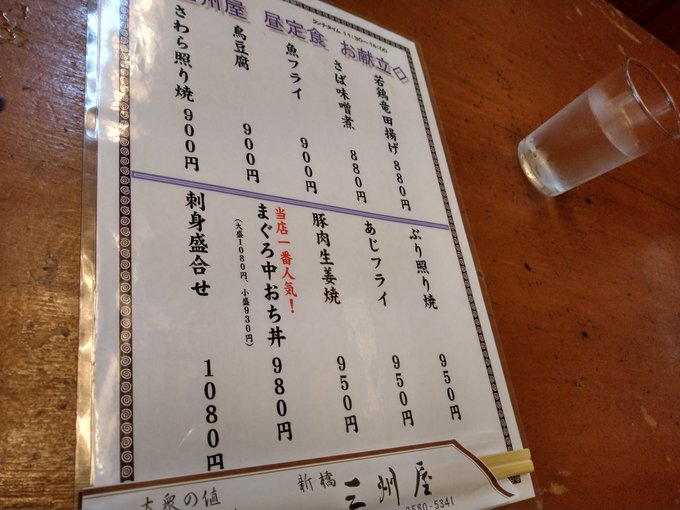 州屋 昼定食 お献立
ランチタイム 11:30〜14:00
若鶏竜田揚げ 880円
さば味噌煮 880円
魚フライ 900円
鳥豆腐 900円
さわら照り焼 900円
ぶり照り焼 950円
あじフライ 950円
豚肉生姜焼 950円
当店一番人気!
まぐろ中おち丼 980円
(大盛1080円、小盛930円)
刺身盛合せ 1080円
大衆の値
新橋 三州屋
3580-5341